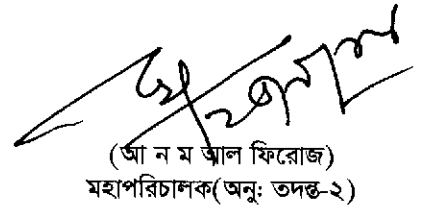 (আ ন ম আল ফিরোজ)
মহাপরিচালক(অনু: তদন্ত-২)